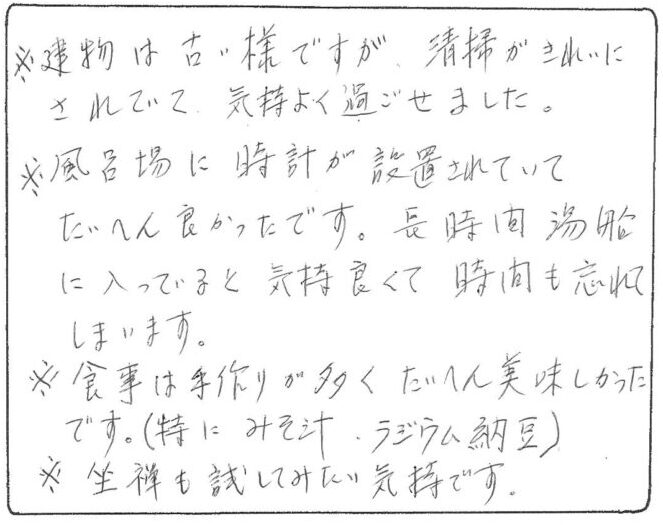 ※建物は古い様ですが、清掃がきれいに
されていて、気持よく過ごせました。
※風呂場に時計が設置されていて
たいへん良かったです。長時間湯船
に入っていると気持良くて時間も忘れて
しまいます。
※食事は手作りが多くたいへん美味しかった
です。(特にみそ汁、ラジウム納豆)
※坐禅も試してみたい気持です。